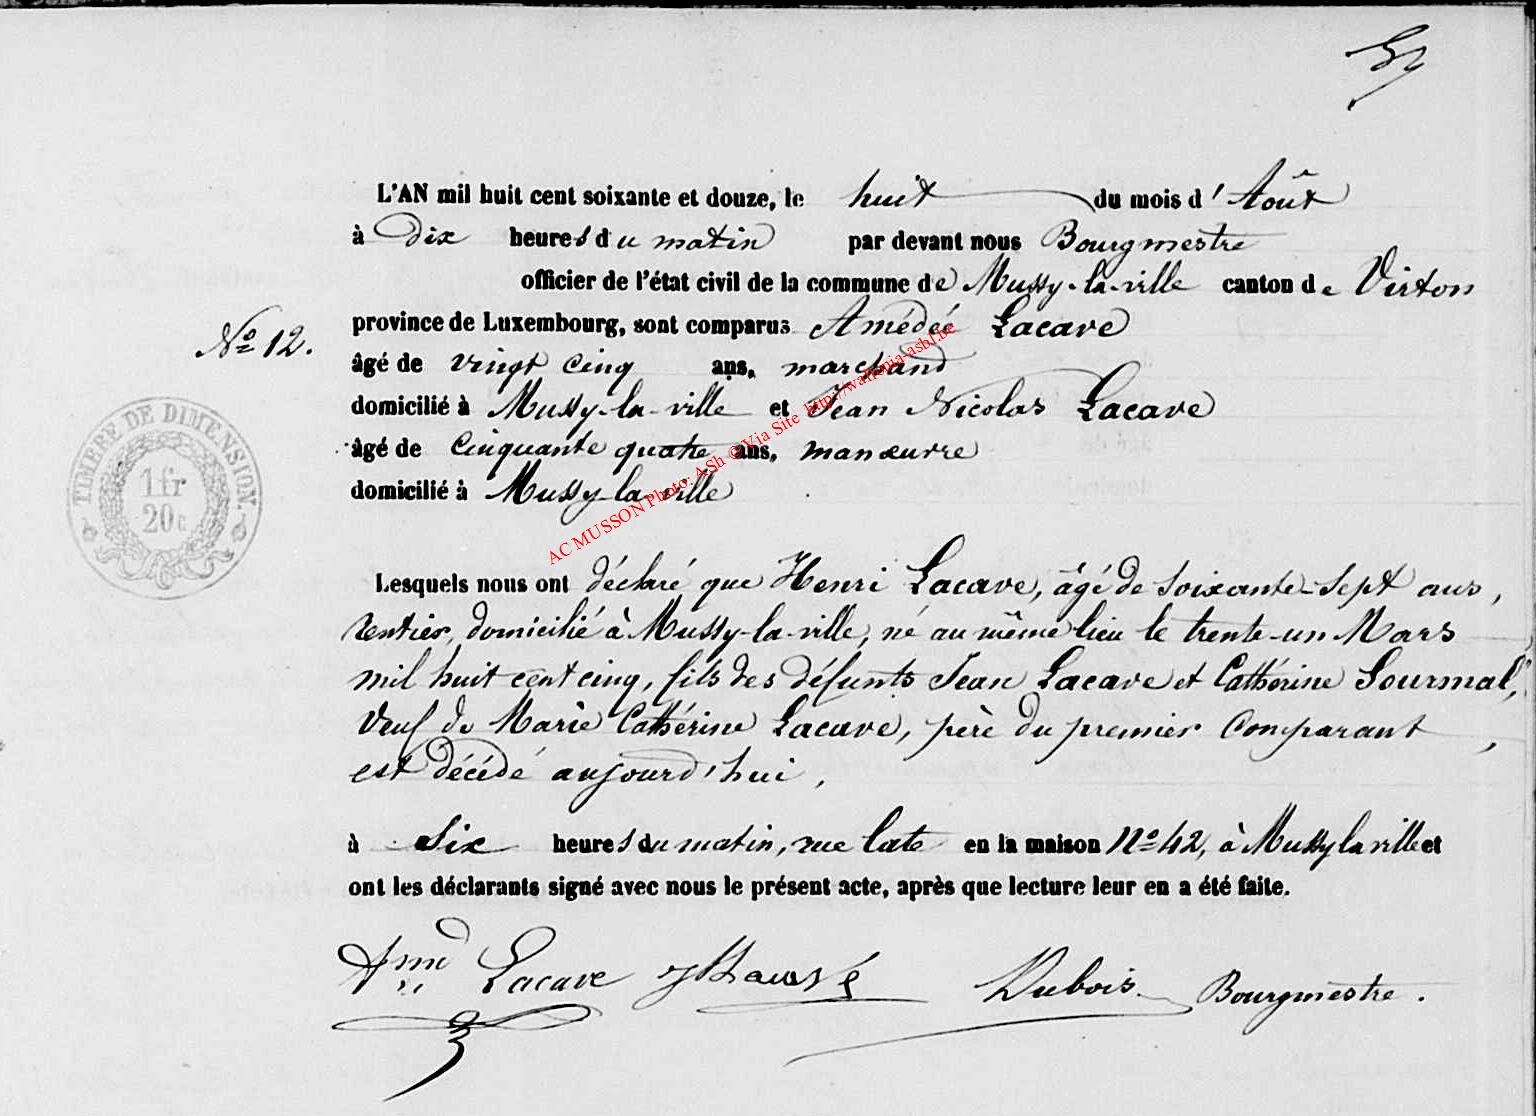 L'AN mil huit cent soixante et douze, le huit du mois d'Août
à Dix heures du matin par devant nous Bourgmestre
officier de l'état civil de la commune de Mussy-la-ville canton de Virton
N° 12.
province de Luxembourg, sont comparus Amédée Lacave
âgé de vingt cinq ans, marchand
domicilié à Mussy-la-ville et Jean Nicolas Lacave
âgé de Cinquante quatre ans, manœuvre
domicilié à Mussy-la-ville
TIMBRE DE DIMENSION.
1 fr
20 c
AC MUSSON Photo: ASh © Via Site http://wallonia-asbl.be
Lesquels nous ont déclaré que Henri Lacave, âgé de soixante-sept ans,
rentier, domicilié à Mussy-la-ville, né au même lieu le trente-un Mars
mil huit cent cinq, fils des défunts Jean Lacave et Cathérine Gourmal,
Veuf de Marie Cathérine Lacave, père du premier Comparant,
est décédé aujourd'hui,
à six heures du matin, rue late en la maison N° 42, à Mussy la ville et
ont les déclarants signé avec nous le présent acte, après que lecture leur en a été faite.
Lacave Dubois Bourgmestre.